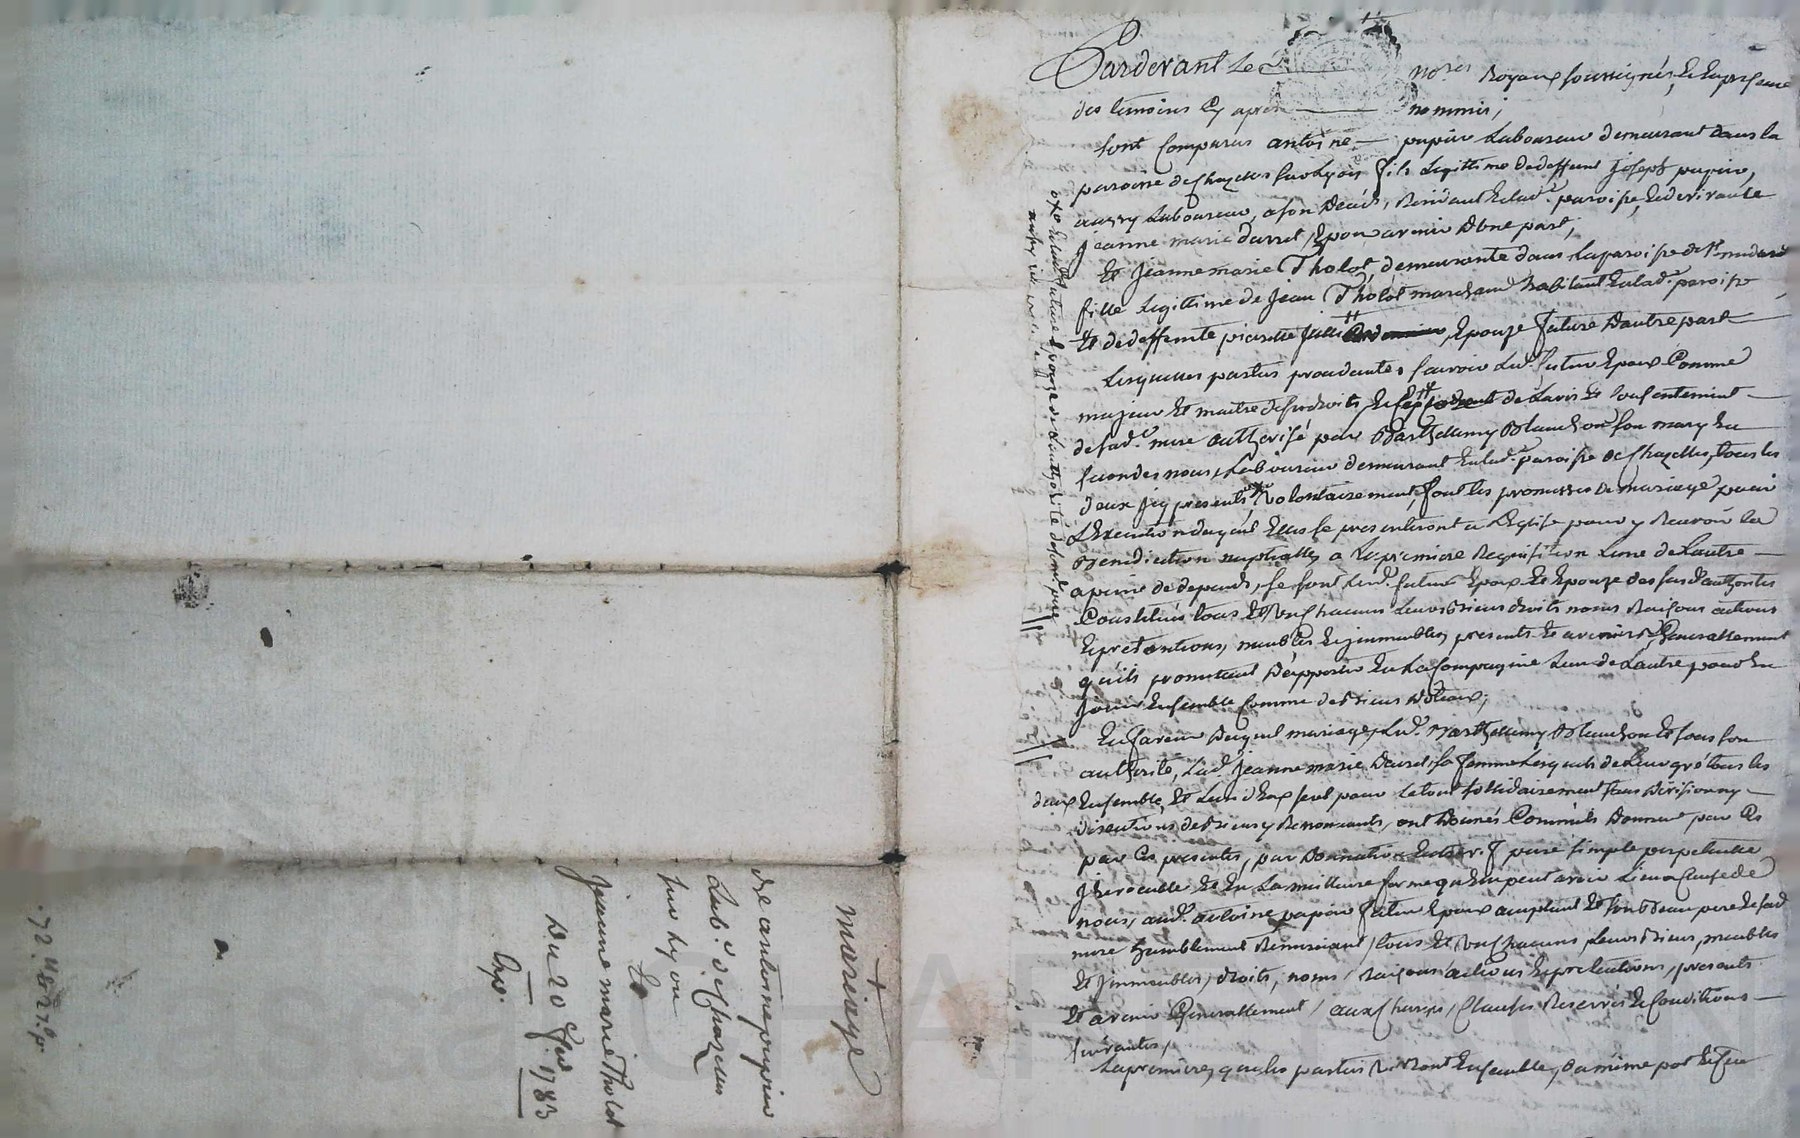 mariage
de antoine papier
Lab.r de Chazelles
sur Lyon
Et
Jeanne marie Tholot
Du 20 1783
Exp.
Pardevant Les no.res Royaux soussignés, Et En presence
des temoins Cy apres nommés,
sont Comparus antoine papier Laboureur demeurant dans la
paroisse de Chazelles sur Lyon fils Legittime de deffunt joseph papier,
aussy Laboureur, a son Deces, Residant En lad.e paroisse, Et de vivante
Jeanne marie Durret, Epoux avenir D'une part,
Et Jeanne marie Tholot, demeurante dans La paroisse de St medard
fille Legittime de Jean Tholot marchand habitant En lad.e paroisse
Et de deffunte pierrette Epouze future D'autre part
Lesquelles parties procedantes, sçavoir Led. futur Epoux Comme
majeur Et maitre de ses droits, de L'avis Et Consentement
de sad.e mere authorisé par Barthelemy Blanchon son mary En
secondes noces, Laboureur demeurant En lad.e paroisse de Chazelles, tous les
deux icy presents, volontairement, font les promesses de mariage pour
L'Execution duquel Elles se presenteront a L'Eglise pour y Recevoir la
Benediction nuptialle, a La premiere Requisition L'une de L'autre
a peine de depends, se sont Lesd. futurs Epoux Et Epouze des susd. authorités
Constitués tous Et Un Chacuns Leurs Biens droits noms Raisons actions
Et pretentions, meubles Et jmmeubles, presents Et avenirs Generallement
qu'ils promettent D'apporter En La Compagnie L'un de L'autre pour En
Jouir Ensemble Comme de Biens Dotaux,
En faveur Duquel mariage, Led. Barthelemy Blanchon Et sous son
authorité, Lad. Jeanne marie Durret sa femme Lesquels de Leur gré tous les
deux Ensemble, Et L'un d'Eux seul pour Le tout sollidairement sans Division ny
discution de Biens y Renonceants, ont Donnés Comme ils Donnent par Ces
par Ces presentes, par Donnation Entrevif pure simple perpetuelle
Jrrevocable Et En La meilleure forme qu'elle peut avoir Lieu a Cause de
noces, aud. antoine papier futur Epoux acceptant Et son Beau pere Et sad
mere humblement Remerciant, tous Et Un Chacuns Leurs Biens, meubles
Et jmmeubles, droits, noms, Raisons actions Et pretentions, presents
Et avenir Generallement, aux Charges, Clauses Reserves Et Conditions
suivantes,
La premiere, que les parties vivront Ensemble, Du même pot Et feu